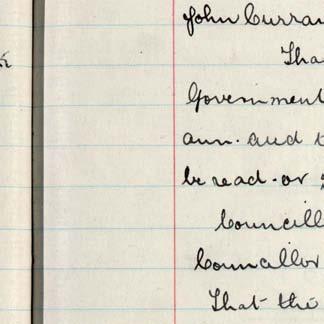 John Curran
Tha
Government
ann. and t
be read. or
Councill
Councillor
That the